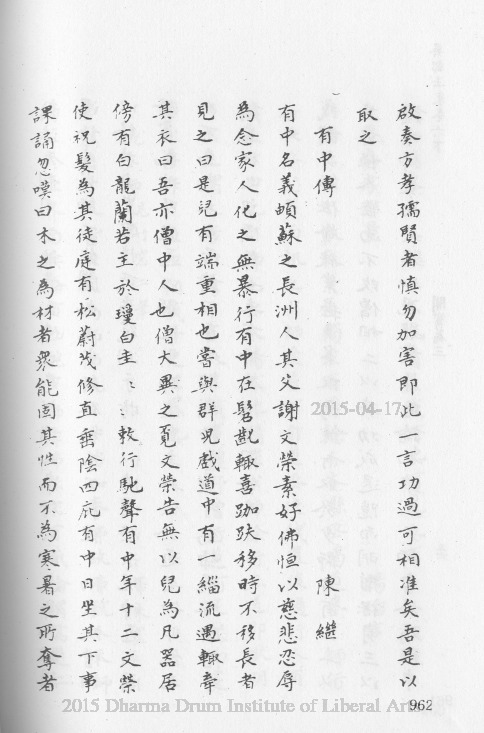 啟奏方孝孺賢者慎勿加害即此一言功過可相准矣吾是以
取之
有中傳 陳繼
有中名義頔蘇之長洲人其父謝文榮素好佛恒以慈悲忍辱
為念家人化之無暴行有中在髫齔輒喜跏趺移時不移長者
見之曰是兒有端重相也當與群兒戲道中有一緇流遇輒牽
其衣曰吾亦僧中人也僧大異之覓文榮告無以兒為凡器居
傍有白龍蘭若主於瓊白圭〻〻敕行馳聲有中年十二文榮
使祝髮為其徒庭有松蔚茂修直垂陰四庇有中日坐其下事
課誦忽嘆曰木之為材者衆能固其性而不為寒暑之所奪者
2015-04-17
962
2015 Dharma Drum Institute of Liberal Arts